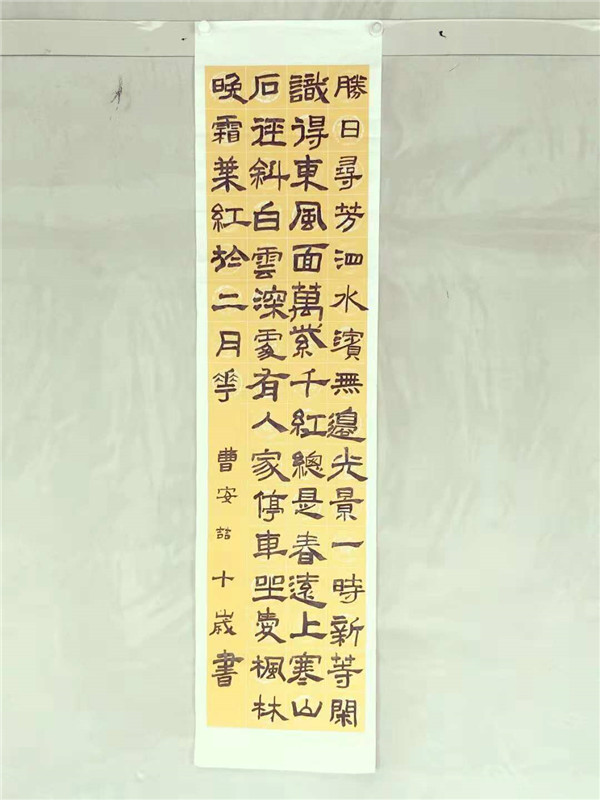 勝日尋芳泗水濱無邊光景一時新等閑
識得東風面萬紫千紅總是春遠上寒山
石徑斜白雲深處有人家停車坐愛楓林
晚霜葉紅於二月花
曹安喆十歲書